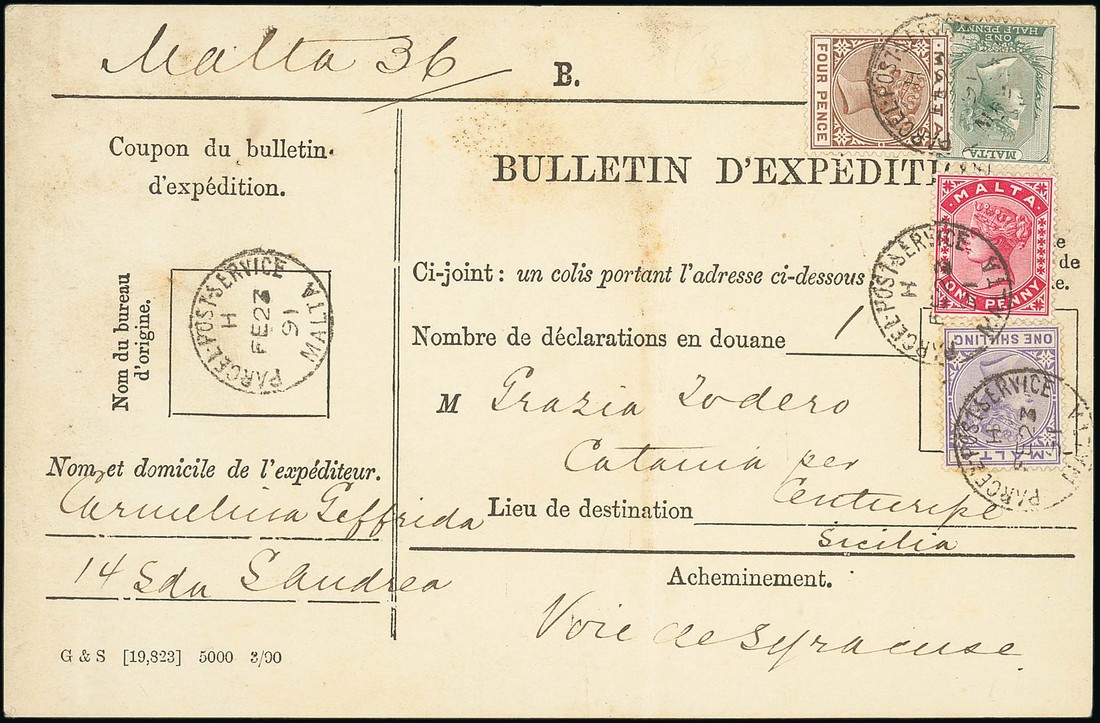 Malta 36
B.
Coupon du bulletin
d'expédition.
Nom du bureau
d'origine.
PARCEL-POST-SERVICE
H
FE 23
91
MALTA
Nom et domicile de l'expéditeur.
Carmelina Geffrida
14 Sda S Andrea
G & S [19,823] 5000 3/90
BULLETIN D'EXPEDITI
Ci-joint : un colis portant l'adresse ci-dessous
e
de
ke.
Nombre de déclarations en douane 1
M Grazia Todero
Catania per
Lieu de destination Centuripe
Sicilia
Acheminement.
Voie de Syracuse
FOUR PENCE
MALTA
PARCEL-POST-SERVICE
ONE
HALF PENNY
MALTA
MALTA
ONE PENNY
PARCEL-POST-SERVICE
H
MALTA
ONE SHILLING
MALTA
PARCEL-POST-SERVICE
H